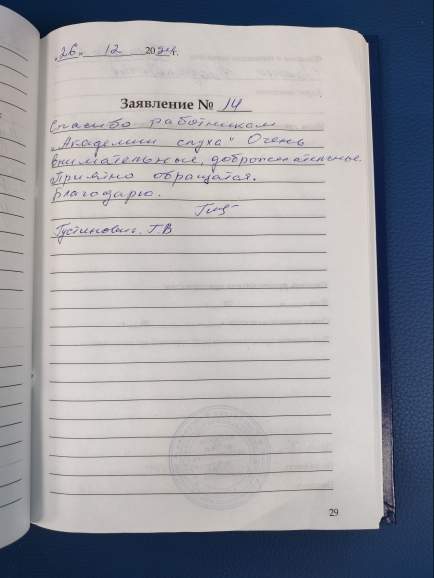 „26„ 12 2024.
Заявление № 14
Спасибо работникам
„Академии слуха" Очень
внимательные, доброжелательные.
Приятно обращатся.
Благодарю.
Густинович. Г.В
29